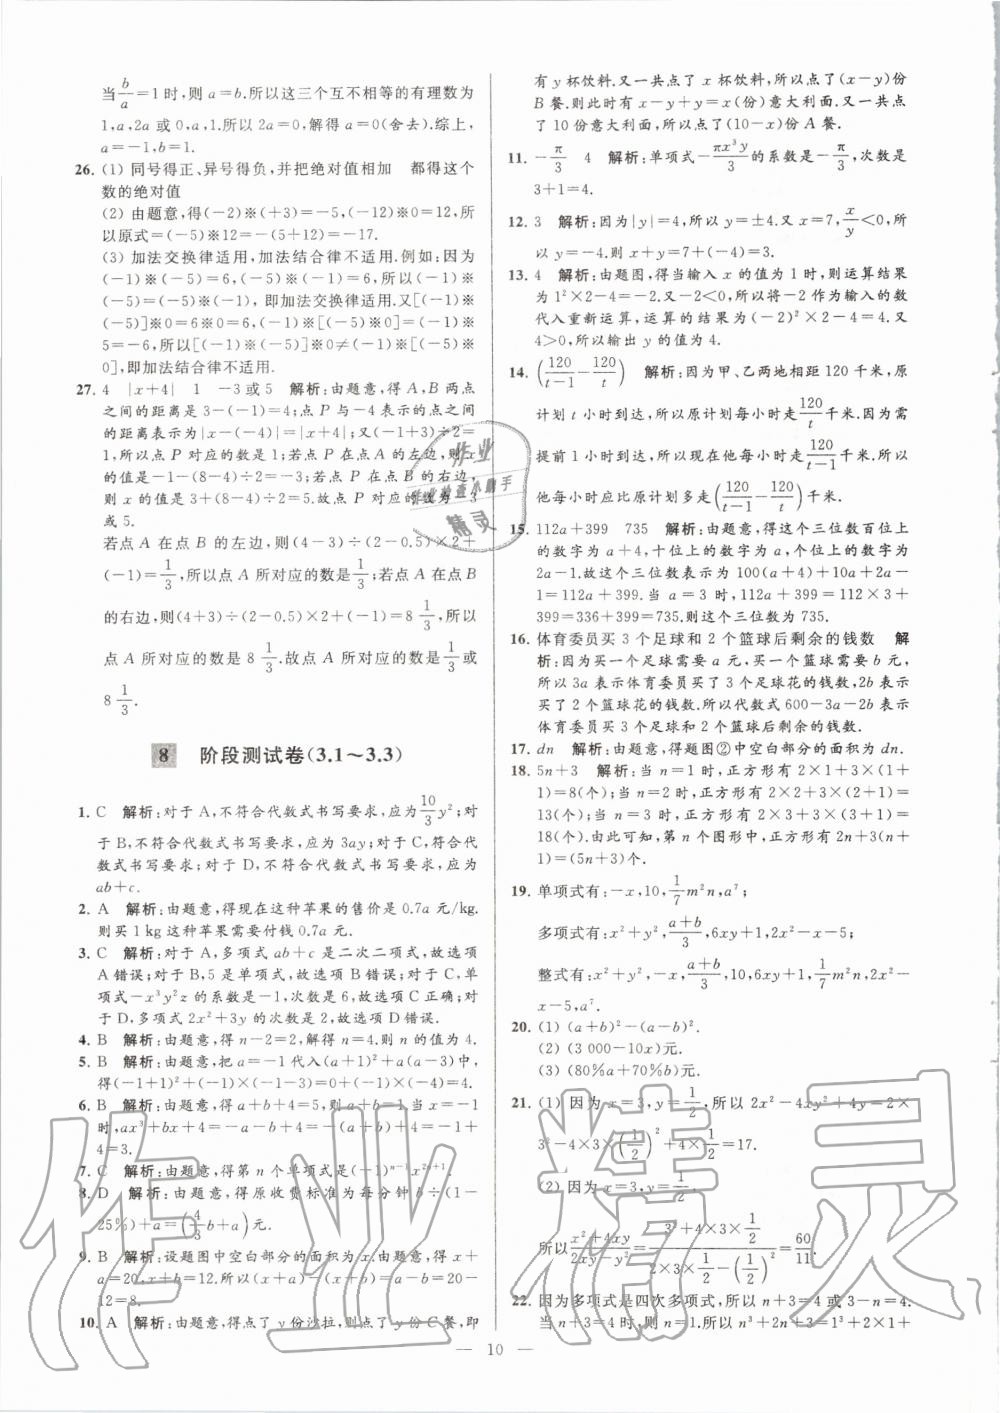 当b/a=1时,则a=b.所以这三个互不相等的有理数为
1,a,2a或0,a,1.所以2a=0,解得a=0(舍去).综上,
a=-1,b=1.
26. (1) 同号得正、异号得负,并把绝对值相加 都得这个
数的绝对值
(2) 由题意,得(-2)※(+3)=-5,(-12)※0=12,所
以原式=(-5)※12=-(5+12)=-17.
(3) 加法交换律适用,加法结合律不适用.例如:因为
(-1)※(-5)=6,(-5)※(-1)=6,所以(-1)※
(-5)=(-5)※(-1),即加法交换律适用.又[(-1)※
(-5)]※0=6※0=6,(-1)※[(-5)※0]=(-1)※
5=-6,所以[(-1)※(-5)]※0≠(-1)※[(-5)※
0],即加法结合律不适用.
27. 4 |x+4| 1 -3或5 解析:由题意,得A,B两点
之间的距离是3-(-1)=4;点P与-4表示的点之间
的距离表示为|x-(-4)|=|x+4|;又(-1+3)÷2=
1,所以点P对应的数是1;若点P在点A的左边,则x
的值是-1-(8-4)÷2=-3;若点P在点B的右边,
则x的值是3+(8-4)÷2=5.故点P对应的数为-3
或5.
若点A在点B的左边,则(4-3)÷(2-0.5)×2+
(-1)=1/3,所以点A所对应的数是1/3;若点A在点B
的右边,则(4+3)÷(2-0.5)×2+(-1)=8 1/3,所以
点A所对应的数是8 1/3.故点A所对应的数是1/3或
8 1/3.
8 阶段测试卷(3.1~3.3)
1. C 解析:对于A,不符合代数式书写要求,应为10/3y²;对
于B,不符合代数式书写要求,应为3ay;对于C,符合代
数式书写要求;对于D,不符合代数式书写要求,应为
ab+c.
2. A 解析:由题意,得现在这种苹果的售价是0.7a元/kg.
则买1 kg这种苹果需要付钱0.7a元.
3. C 解析:对于A,多项式ab+c是二次二项式,故选项
A错误;对于B,5是单项式,故选项B错误;对于C,单
项式-x³y²z的系数是-1,次数是6,故选项C正确;对
于D,多项式2x²+3y的次数是2,故选项D错误.
4. B 解析:由题意,得n-2=2,解得n=4.则n的值为4.
5. B 解析:由题意,把a=-1代入(a+1)²+a(a-3)中,
得(-1+1)²+(-1)×(-1-3)=0+(-1)×(-4)=4.
6. B 解析:由题意,得a+b+4=5,则a+b=1.当x=-1
时,ax³+bx+4=-a-b+4=-(a+b)+4=-1+
4=3.
7. C 解析:由题意,得第n个单项式是(-1)ⁿ⁻¹x²ⁿ⁺¹.
8. D 解析:由题意,得原收费标准为每分钟b÷(1-
25%)+a=(4/3b+a)元.
9. B 解析:设题图中空白部分的面积为x.由题意,得x+
a=20,x+b=12.所以(x+a)-(x+b)=a-b=20-
12=8.
10. A 解析:由题意,得点了y份沙拉,则点了y份C餐,即
有y杯饮料.又一共点了x杯饮料,所以点了(x-y)份
B餐.则此时有x-y+y=x(份)意大利面.又一共点
了10份意大利面,所以点了(10-x)份A餐.
11. -π/3 4 解析:单项式-πx³y/3的系数是-π/3,次数是
3+1=4.
12. 3 解析:因为|y|=4,所以y=±4.又x=7,x/y<0,所
以y=-4.则x+y=7+(-4)=3.
13. 4 解析:由题图,得当输入x的值为1时,则运算结果
为1²×2-4=-2.又-2<0,所以将-2作为输入的数
代入重新运算,运算的结果为(-2)²×2-4=4.又
4>0,所以输出y的值为4.
14. (120/(t-1)-120/t) 解析:因为甲、乙两地相距120千米,原
计划t小时到达,所以原计划每小时走120/t千米.因为需
提前1小时到达,所以现在他每小时走120/(t-1)千米.所以
他每小时应比原计划多走(120/(t-1)-120/t)千米.
15. 112a+399 735 解析:由题意,得这个三位数百位上
的数字为a+4,十位上的数字为a,个位上的数字为
2a-1.故这个三位数表示为100(a+4)+10a+2a-
1=112a+399.当a=3时,112a+399=112×3+
399=336+399=735.则这个三位数为735.
16. 体育委员买3个足球和2个篮球后剩余的钱数 解
析:因为买一个足球需要a元,买一个篮球需要b元,
所以3a表示体育委员买了3个足球花的钱数,2b表示
买了2个篮球花的钱数.所以代数式600-3a-2b表示
体育委员买3个足球和2个篮球后剩余的钱数.
17. dn 解析:由题意,得题图②中空白部分的面积为dn.
18. 5n+3 解析:当n=1时,正方形有2×1+3×(1+
1)=8(个);当n=2时,正方形有2×2+3×(2+1)=
13(个);当n=3时,正方形有2×3+3×(3+1)=
18(个).由此可知,第n个图形中,正方形有2n+3(n+
1)=(5n+3)个.
19. 单项式有:-x,10,1/7m²n,a⁷;
多项式有:x²+y²,(a+b)/3,6xy+1,2x²-x-5;
整式有:x²+y²,-x,(a+b)/3,10,6xy+1,1/7m²n,2x²-
x-5,a⁷.
20. (1) (a+b)²-(a-b)².
(2) (3 000-10x)元.
(3) (80%a+70%b)元.
21. (1) 因为x=3,y=1/2,所以2x²-4xy²+4y=2×
3²-4×3×(1/2)²+4×1/2=17.
(2) 因为x=3,y=1/2,
所以(x²+4xy)/(2xy-y²)=(3²+4×3×1/2)/(2×3×1/2-(1/2)²)=60/11.
22. 因为多项式是四次多项式,所以n+3=4或3-n=4.
当n+3=4时,n=1.所以n³+2n+3=1³+2×1+
— 10 —
作业
作业检查小助手
精灵
作业精灵